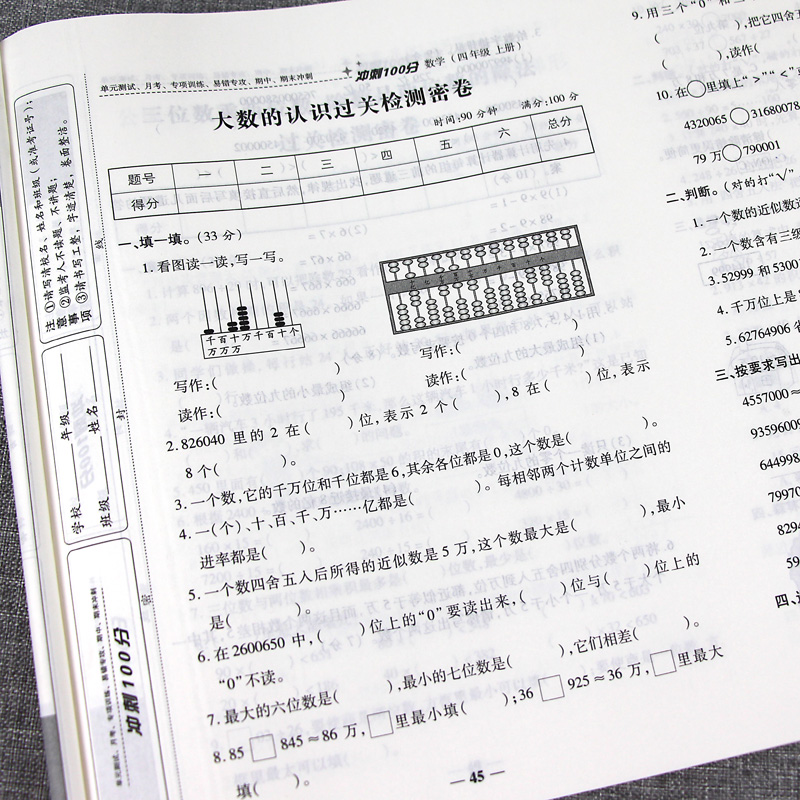 单元测试、月考、专项训练、易错专攻、期中、期末冲刺 冲刺100分 数学(四年级 上册)
大数的认识过关检测密卷
时间:90 分钟 满分:100 分
题号 一 二 三 四 五 六 总分
得分
一、填一填。(33 分)
1. 看图读一读,写一写。
千百十万千百十个
万万万
写作:( ) 写作:( )
读作:( ) 读作:( )
2. 826040 里的 2 在( )位,表示 2 个( ),8 在( )位,表示
8 个( )。
3. 一个数,它的千万位和千位都是 6,其余各位都是 0,这个数是( )。
4. 一(个)、十、百、千、万……亿都是( )。每相邻两个计数单位之间的
进率都是( )。
5. 一个数四舍五入后所得的近似数是 5 万,这个数最大是( ),最小
是( )。
6. 在 2600650 中,( )位上的“0”要读出来,( )位与( )位上的
“0”不读。
7. 最大的六位数是( ),最小的七位数是( ),它们相差( )。
8. 85□845≈86 万,□里最小填( );36□925≈36 万,□里最大
填( )。
— 45 —
9. 用三个“0”和三
( ),把它四舍五
( ),读作(
10. 在○里填上“>”“<”或
4320065○31680078
79 万○790001
二、判断。(对的打“√”,
1. 一个数的近似数
2. 一个数含有三级
3. 52999 和 5300
4. 千万位上是“
5. 62764906 省
三、按要求写出
4557000≈
9359600
644998
79970
8294
59
四、
注意事项
①请写清校名、姓名和班级(或准考证号);
②监考人不读题、不讲题;
③请书写工整,字迹清楚,卷面整洁。
学校 年级
班级 姓名
密 封 线
冲刺100分
单元测试、月考、专项训练、易错专攻、期中、期末冲刺